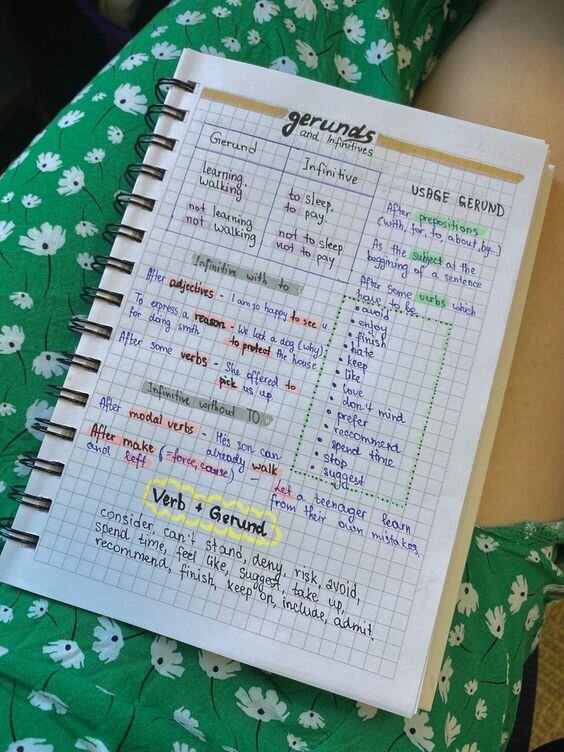 gerunds
and Infinitives
Gerund
learning,
walking
not learning
not walking
Infinitive
to sleep,
to pay.
not to sleep
not to pay
USAGE GERUND
After prepositions
(with, for, to, about, by...)
As the subject at the
beggining of a sentence
After some verbs which
have to be
• avoid
• enjoy
• finish
• hate
• keep
• like
• love
• don't mind
• prefer
• reccommend
• spend time
• stop
• suggest
Infinitive with to
After adjectives - I am so happy to see u
To express a reason - We lock a dog (why)
for doing smth to protect the house
After some verbs - She offered to
pick us up.
Infinitive without TO
After modal verbs - He's son can
already walk
After make (=force, cause) - Let a teenager learn
and left from their own mistakes.
Verb + Gerund
consider, can't stand, deny, risk, avoid,
spend time, feel like, suggest, take up,
recommend, finish, keep on, include, admit.